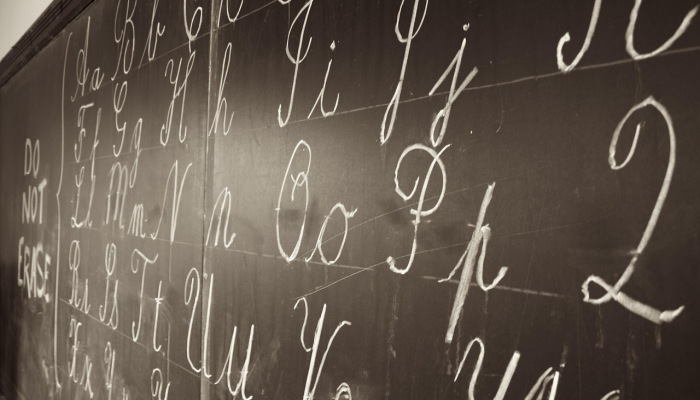 DO
NOT
ERASE
Aa Bb C
Ff Gg Hh Ii Jj K
Ll Mm Nn Oo Pp Q
Rr Ss Tt Uu V
Xx Y